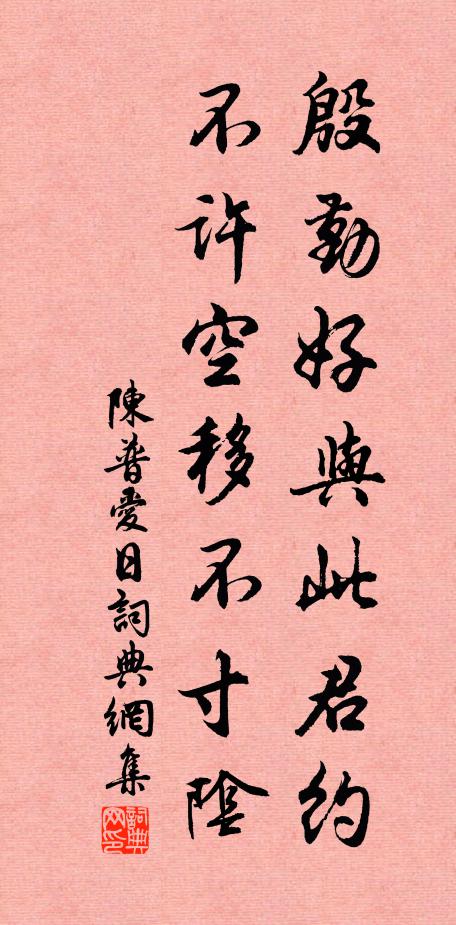 殷勤好與此君約
不許空移不寸陰
陳普愛日詞典網集
詞典
网印